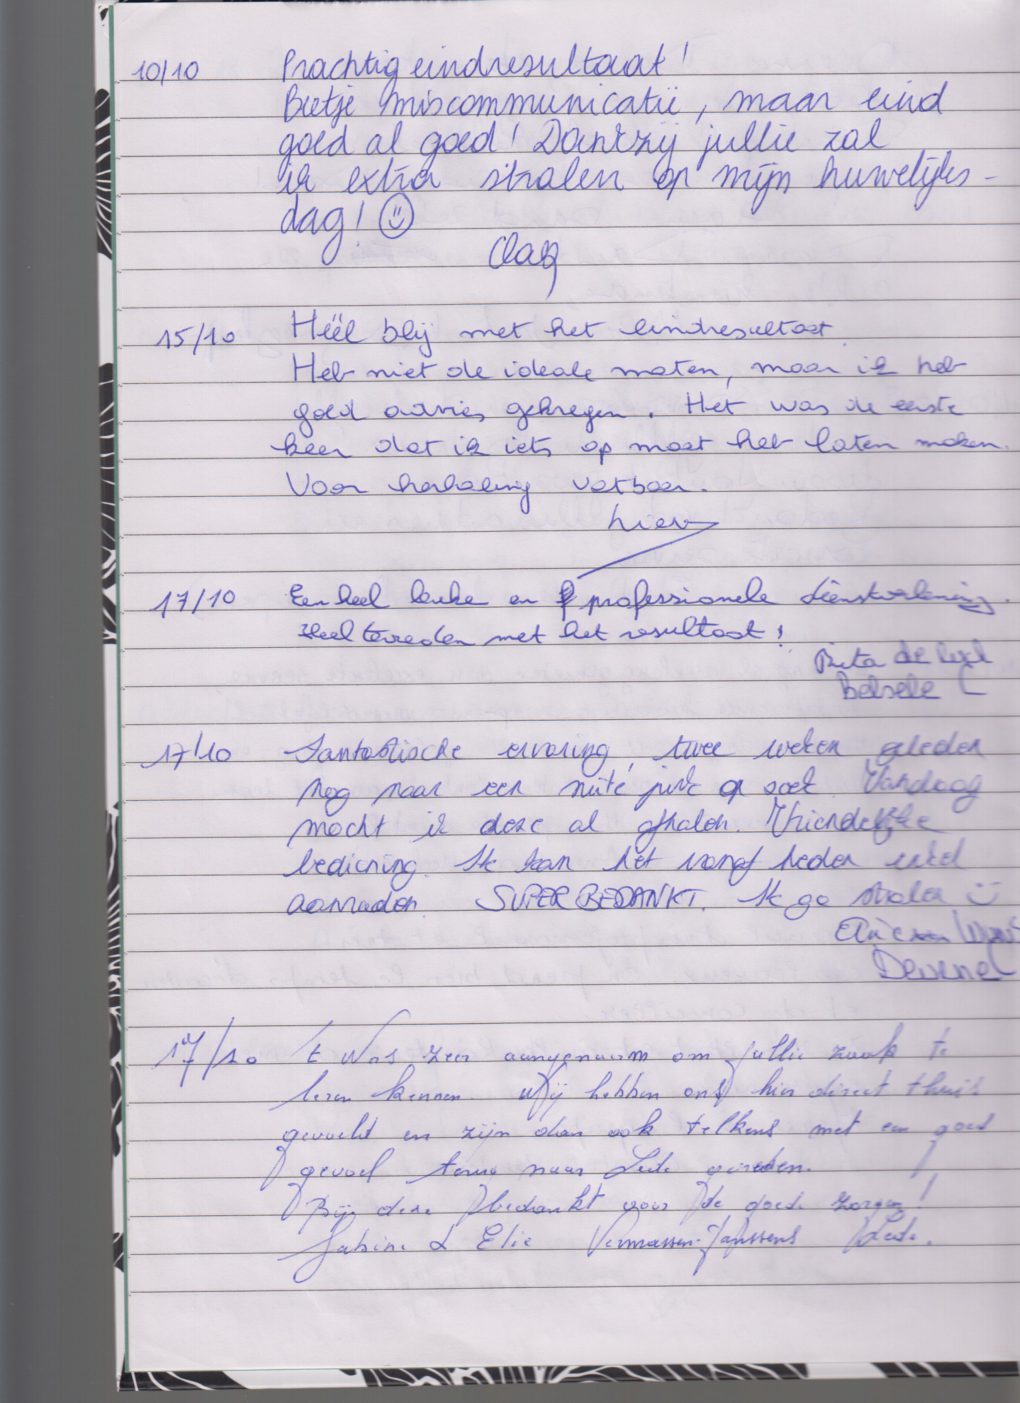 10/10 Prachtig eindresultaat!
Beetje miscommunicatie, maar eind
goed al goed! Dankzij jullie zal
ik extra stralen op mijn huwelijks-
dag! ☺
15/10 Héél blij met het eindresultaat.
Heb niet de ideale maten, maar ik heb
goed advies gekregen. Het was de eerste
keer dat ik iets op maat heb laten maken.
Voor herhaling vatbaar.
17/10 Een heel leuke en professionele dienstverlening.
Heel tevreden met het resultaat!
Rita de
Belsele
17/10 Fantastische ervaring, twee weken geleden
nog naar een suite op zoek. Vandaag
mocht ik deze al afhalen. Vriendelijke
bediening. Ik kan het vanaf heden enkel
aanraden. SUPER BEDANKT. Ik ga stralen ☺
Deurne
17/10 't Was zeer aangenaam om jullie zaak te
leren kennen. Wij hebben ons hier direct thuis
gevoeld en zijn dan ook telkens met een goed
gevoel terug naar Lede gereden.
Bij deze bedankt voor de goede zorgen!
Sabine & Elie Vermassen-Janssens Lede.